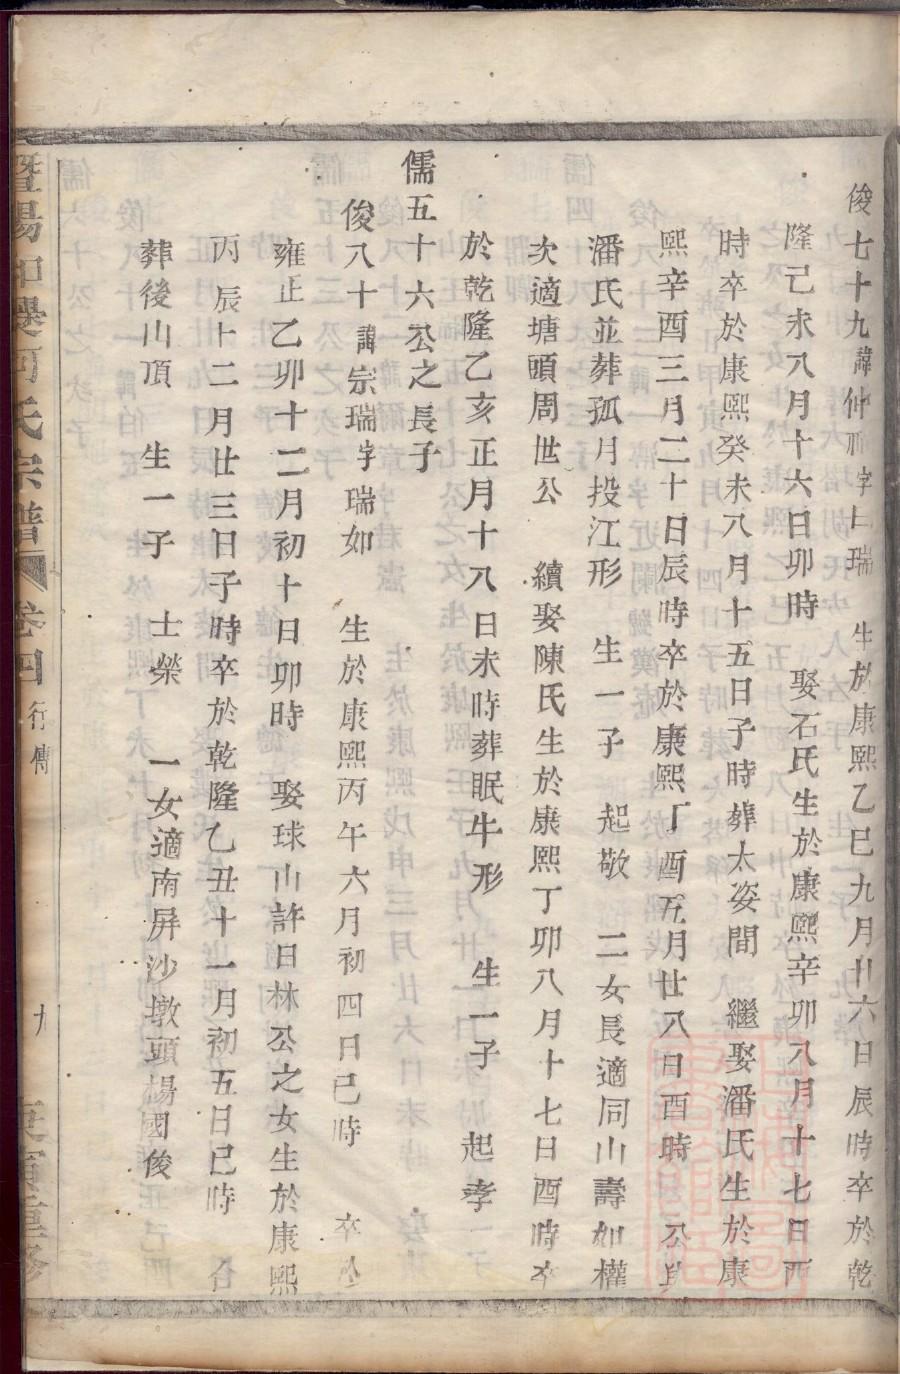 俊七十九諱仲字曰瑞 生於康熙乙巳九月廿六日辰時卒於乾
隆己未八月十六日卯時 娶石氏生於康熙辛卯八月十七日酉
時卒於康熙癸未八月十五日子時葬太姿間 繼娶潘氏生於康
熙辛酉三月二十日辰時卒於康熙丁酉五月廿八日酉時 公與
潘氏並葬孤月投江形 生一子 起敬 二女長適同山壽如權
次適塘頭周世公 續娶陳氏生於康熙丁卯八月十七日酉時卒
於乾隆乙亥正月十八日未時葬眠牛形 生一子 起孝
儒五十六公之長子
俊八十諱宗瑞字瑞如 生於康熙丙午六月初四日巳時 卒於
雍正乙卯十二月初十日卯時 娶球山許日林公之女生於康熙
丙辰十二月廿三日子時卒於乾隆乙丑十一月初五日巳時 合
葬後山頂 生一子 士榮 一女適南屏沙墩頭楊國俊
暨陽 何氏宗譜 卷四 行傳 九 重修